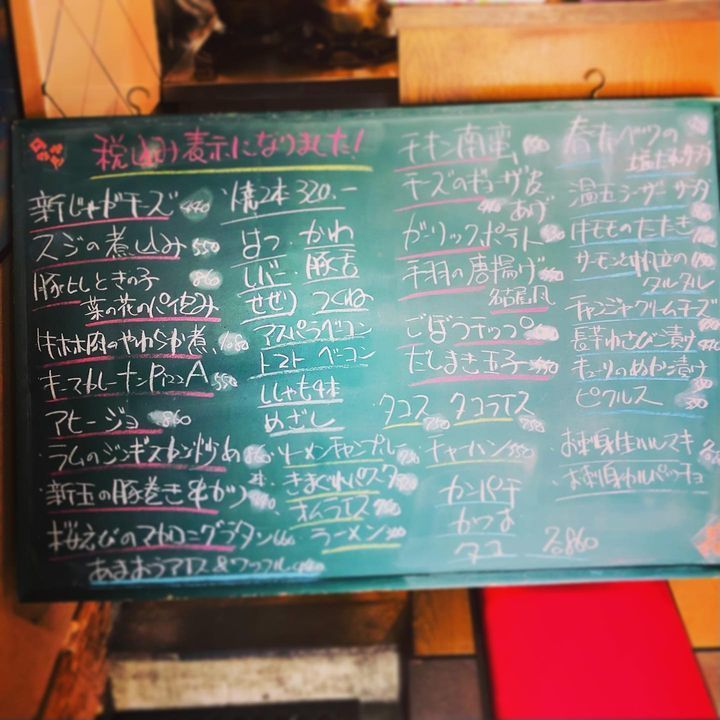 税込み表示になりました!
新じゃがチーズ
スジの煮込み 550
豚ヒレときの子 860
菜の花のパイ包み
牛ホホ肉のやわらか煮
キーマとレーズンPizzA 550
アヒージョ 860
ラムのジンギスカン炒め 860
新玉の豚巻き串かつ
桜えびのマカロニグラタン
あまおうアイス&ワッフル
焼2本 320.-
はつ・かわ
レバー 豚古
せせり つくね
アスパラベーコン
トマト ベーコン
ししゃも4本
めざし
ソーメンチャンプルー
きまぐれパスタ
オムライス
ラーメン
チキン南蛮
チーズのギョーザ皮
あげ
ガーリックポテト
手羽の唐揚げ
名古屋風
ごぼうチップ
だしまき玉子
タコス タコライス
750 750
チャーハン 550
カンパチ
かつお
タコ 860
春キャベツの
温玉シーザーサラダ
はもものたたき
サーモンと帆立の
タルタル
チャンジャクリームチーズ
長芋わさび漬け
キューリのぬか漬け
ピクルス
お刺身生ハルマキ
お刺身カルパッチョ